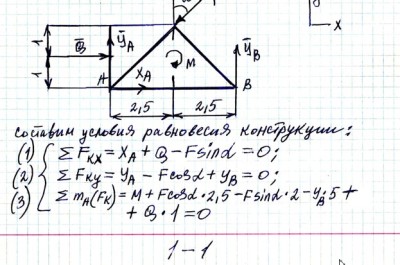 α
y
x
1
Q̄
ȳ_A
ȳ_B
1
M
A
X_A
B
2,5
2,5
составим условия равновесия конструкции:
(1) ΣF_KX = X_A + Q - Fsinα = 0;
(2) ΣF_Ky = y_A - Fcosα + y_B = 0;
(3) Σm_A(F_K) = M + Fcosα·2,5 - Fsinα·2 - y_B·5 +
+ Q·1 = 0
1-1